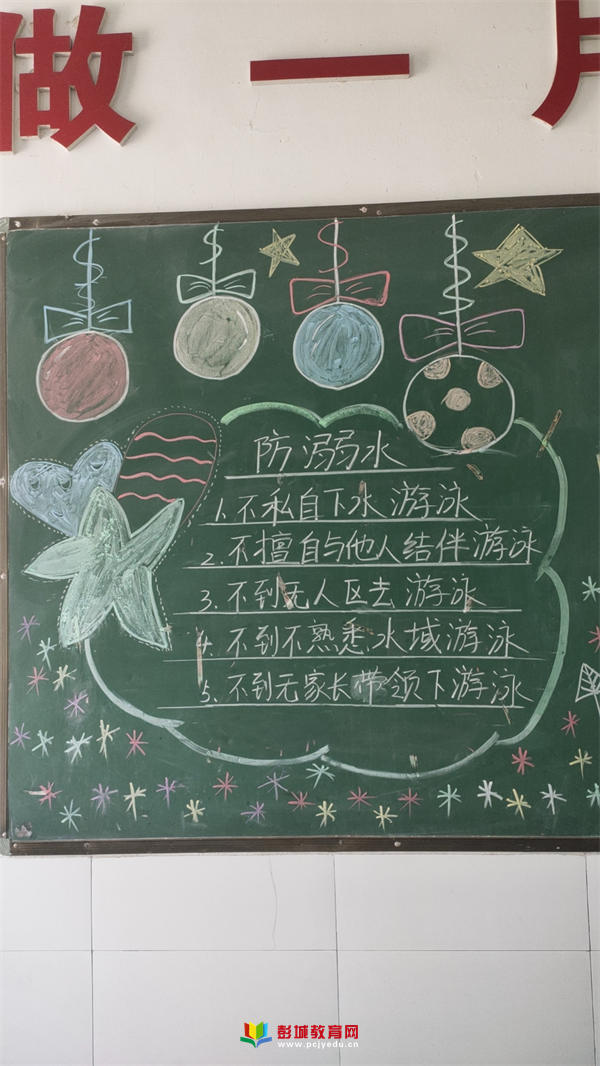 做一
防溺水
1. 不私自下水游泳
2. 不擅自与他人结伴游泳
3. 不到无人区去游泳
4. 不到不熟悉水域游泳
5. 不到无家长带领下游泳
彭城教育网
www.pcjyedu.cn